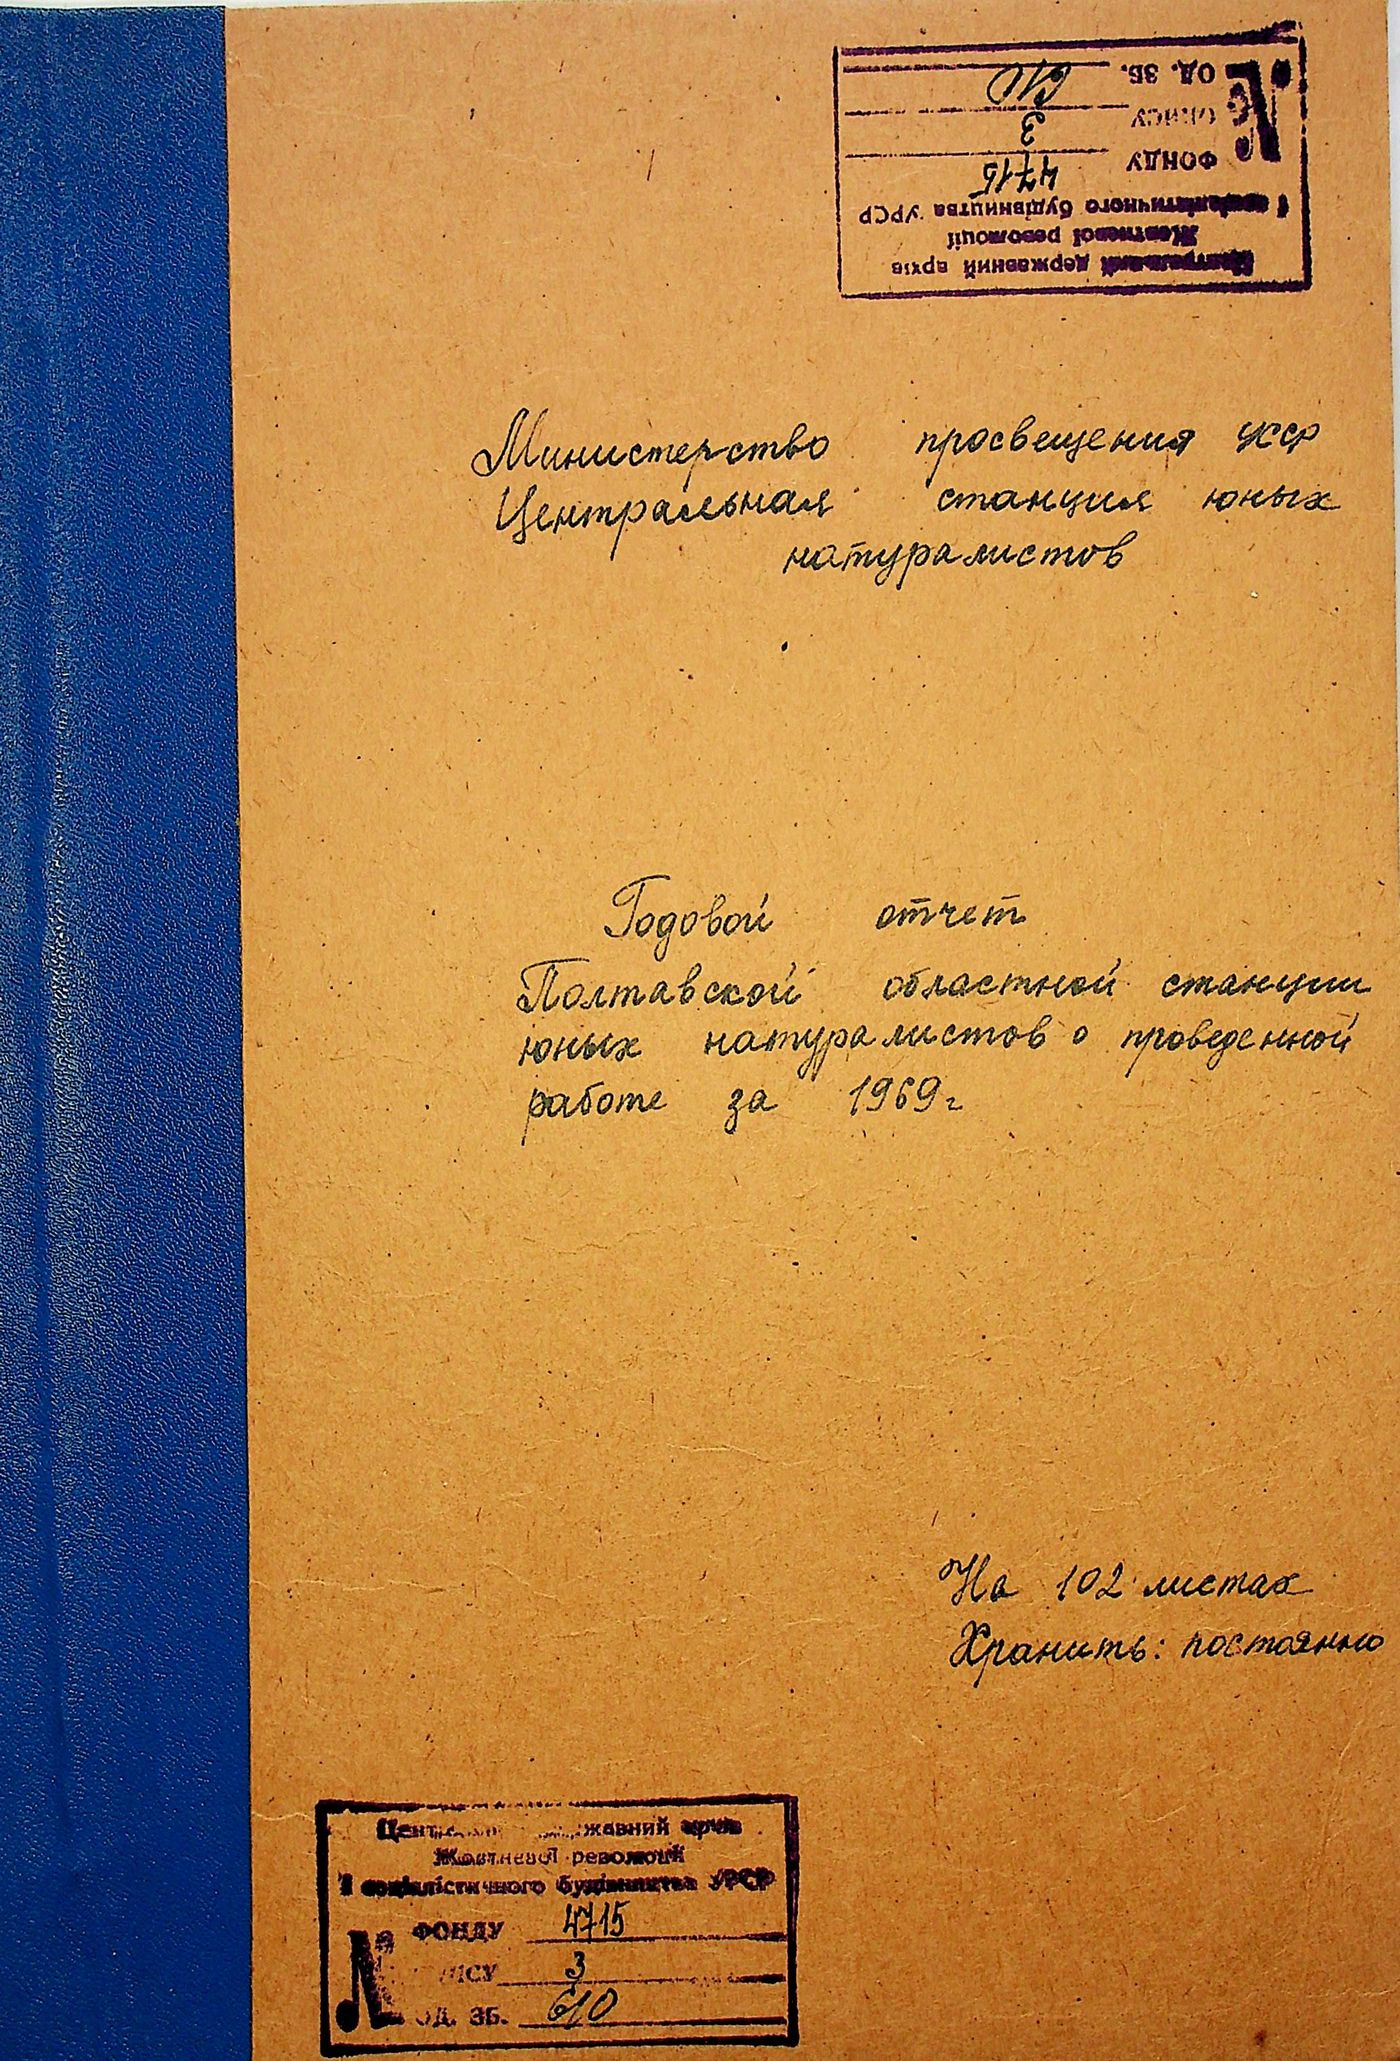 Центральний державний архів
Жовтневої революції
і соціалістичного будівництва УРСР
№
ФОНДУ 4715
ОПИСУ 3
ОД. ЗБ. 610
Министерство просвещения УССР
Центральная станция юных
натуралистов
Годовой отчет
Полтавской областной станции
юных натуралистов о проведенной
работе за 1969г
На 102 листах
Хранить: постоянно
Центральний державний архів
Жовтневої революції
і соціалістичного будівництва УРСР
№
ФОНДУ 4715
ОПИСУ 3
ОД. ЗБ. 610